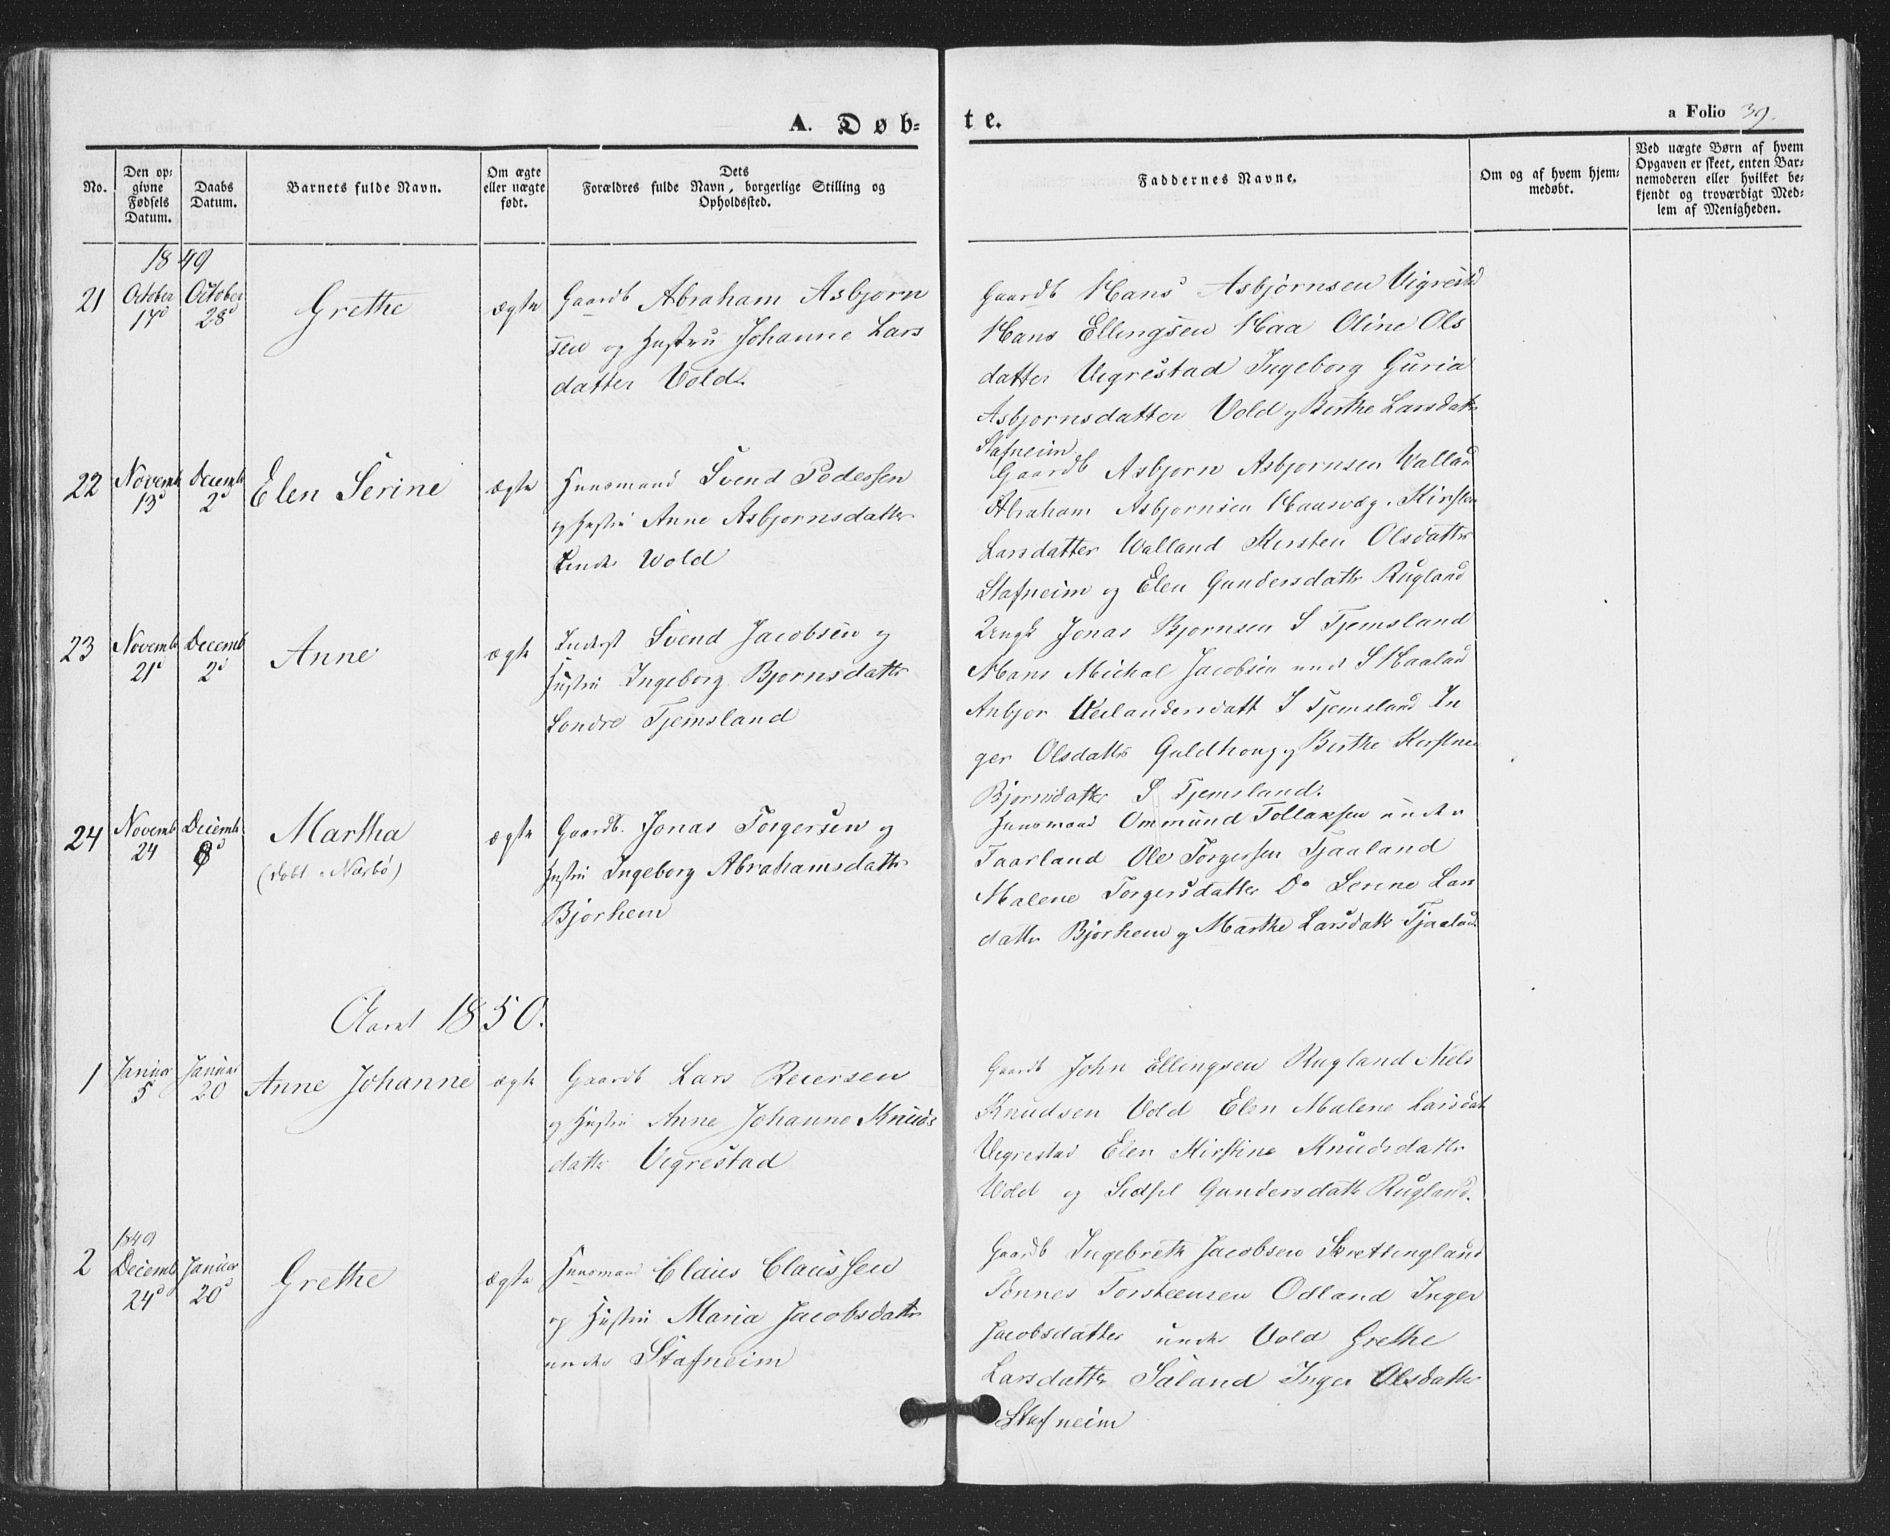 A. Døb-
te.
a Folio 39.
No.
Den op-
givne
Fødsels
Datum.
Daabs
Datum.
Barnets fulde Navn.
Om ægte
eller uægte
født.
Dets
Forældres fulde Navn, borgerlige Stilling og
Opholdssted.
Faddernes Navne.
Om og af hvem hjem-
medøbt.
Ved uægte Børn af hvem
Opgaven er skeet, enten Bar-
nemoderen eller hvilket be-
kjendt og troværdigt Med-
lem af Menigheden.
1849
21
October
17d
October
28d
Grethe
ægte
Gaardb Abraham Asbjørn
sen og Hustru Johanne Lars
datter Vold.
Gaardb Hans Asbjørnsen Vigrestd
Hans Ellingsen Haa Oline Ols
datter Vegrestad Ingeborg Guria
Asbjornsdatter Vold og Berthe Larsdattr
Stafneim
22
Novemb
13d
Decemb
2d
Elen Serine
ægte
Huusmand Svend Pedersen
og Hustru Anne Asbjornsdatter
under Wold
Gaardb Asbjorn Asbjornsen Walland
Abraham Asbjornsen Haasvæg. Kirsten
Larsdatter Walland Kirsten Olsdatter
Stafneim og Elen Gundersdattr Rugland
23
Novemb
21d
Decemb
2d
Anne
ægte
Inderst Svend Jacobsen og
Hustru Ingeborg Bjornsdattr
Sondre Tjemsland
Ungk Jonas Bjornsen S Tjemsland
Hans Michal Jacobsen und S Haaland
Anbjor Veilandersdatt S Tjemsland In
ger Olsdattr Guldhoug og Berthe Kirstine
Bjornsdattr S Tjemsland.
24
Novemb
24
Decemb
8d
Martha
(døbt i Nærbø)
ægte
Gaardb. Jonas Torgersen og
Hustru Ingeborg Abrahamsdattr
Bjorhem
Huusmand Ommund Tollaksen under
Taarland Ole Torgersen Tjaaland
Malene Torgersdatter Do Serine Lars
dattr Bjorhem og Marthe Larsdattr Tjaaland
Aaret 1850.
1
Januar
5
Januar
20
Anne Johanne
ægte
Gaardb Lars Reiersen
og Hustru Anne Johanne Knuds
dattr Vegrestad
Gaardb John Ellingsen Rugland Niels
Knudsen Vold Elen Malene Larsdat
Vegrestad Elen Kirstine Knudsdattr
Vold og Sidsel Gundersdattr Rugland.
2
1849
Decemb
24d
Januar
20d
Grethe
ægte
Huusmand Claus Claussen
og Hustru Maria Jacobsdattr
under Stafneim
Gaardb Ingebreth Jacobsen Skrettingland
Tønnes Torsteensen Odland Inger
Jacobsdatter under Vold Grethe
Larsdatter Sæland Inger Olsdatter
Stafneim